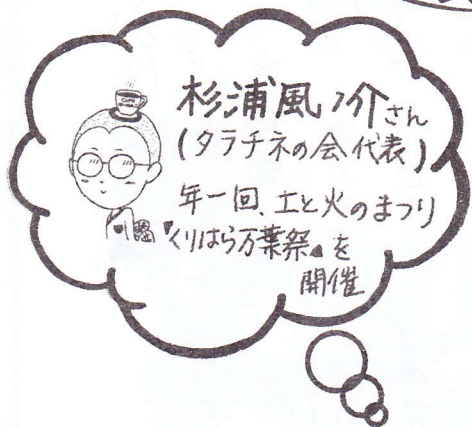 杉浦風ノ介さん
(タラチネの会代表)
年一回、土と火のまつり
『くりはら万葉祭』を
開催